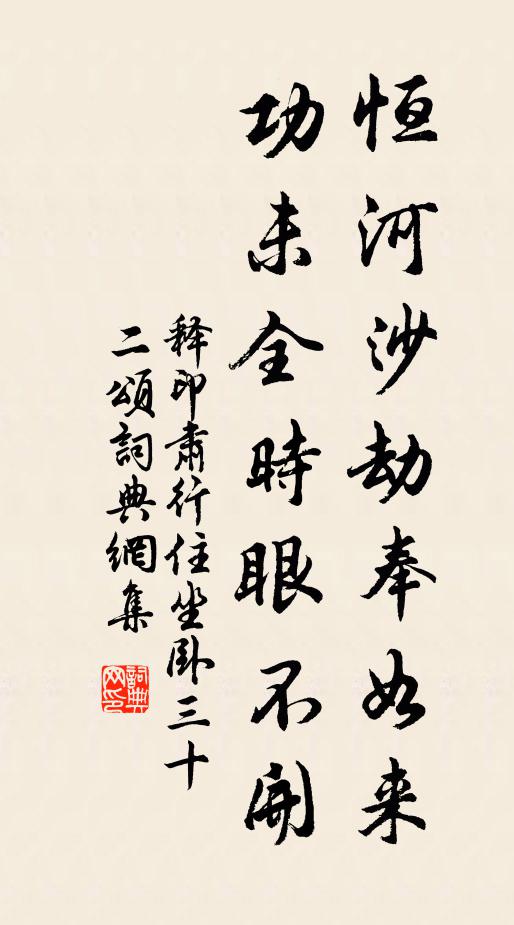 恒河沙劫奉如来
功未全時眼不開
释印肅行住坐卧三十
二頌詞典網集
詞典网印